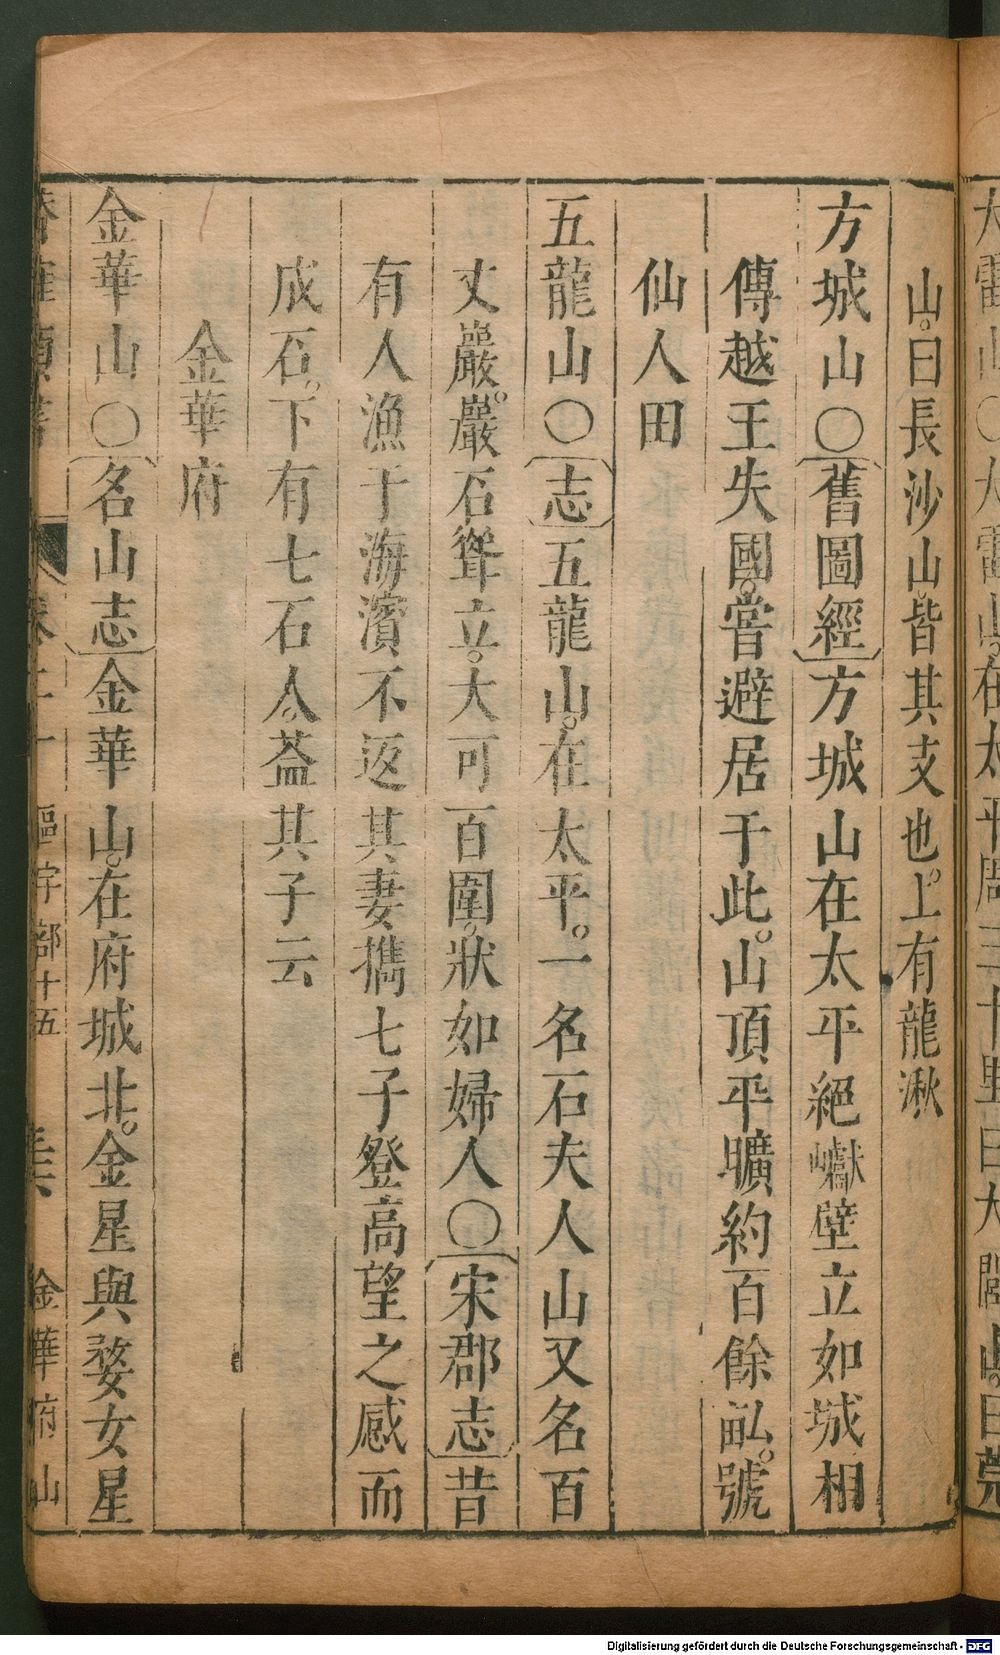 山。曰長沙山。皆其支也。上有龍湫
方城山○〔舊圖經〕方城山在太平絕巘壁立如城相
傳越王失國。嘗避居于此。山頂平曠約百餘畝。號
仙人田
五龍山○〔志〕五龍山。在太平。一名石夫人山又名百
丈巖。巖石聳立。大可百圍。狀如婦人○〔宋郡志〕昔
有人漁于海濱不返其妻攜七子登高望之感而
成石。下有七石人。葢其子云
金華府
金華山○〔名山志〕金華山。在府城北。金星與婺女星
卷二十 區宇部十五 金華府山
Digitalisierung gefördert durch die Deutsche Forschungsgemeinschaft - DFG